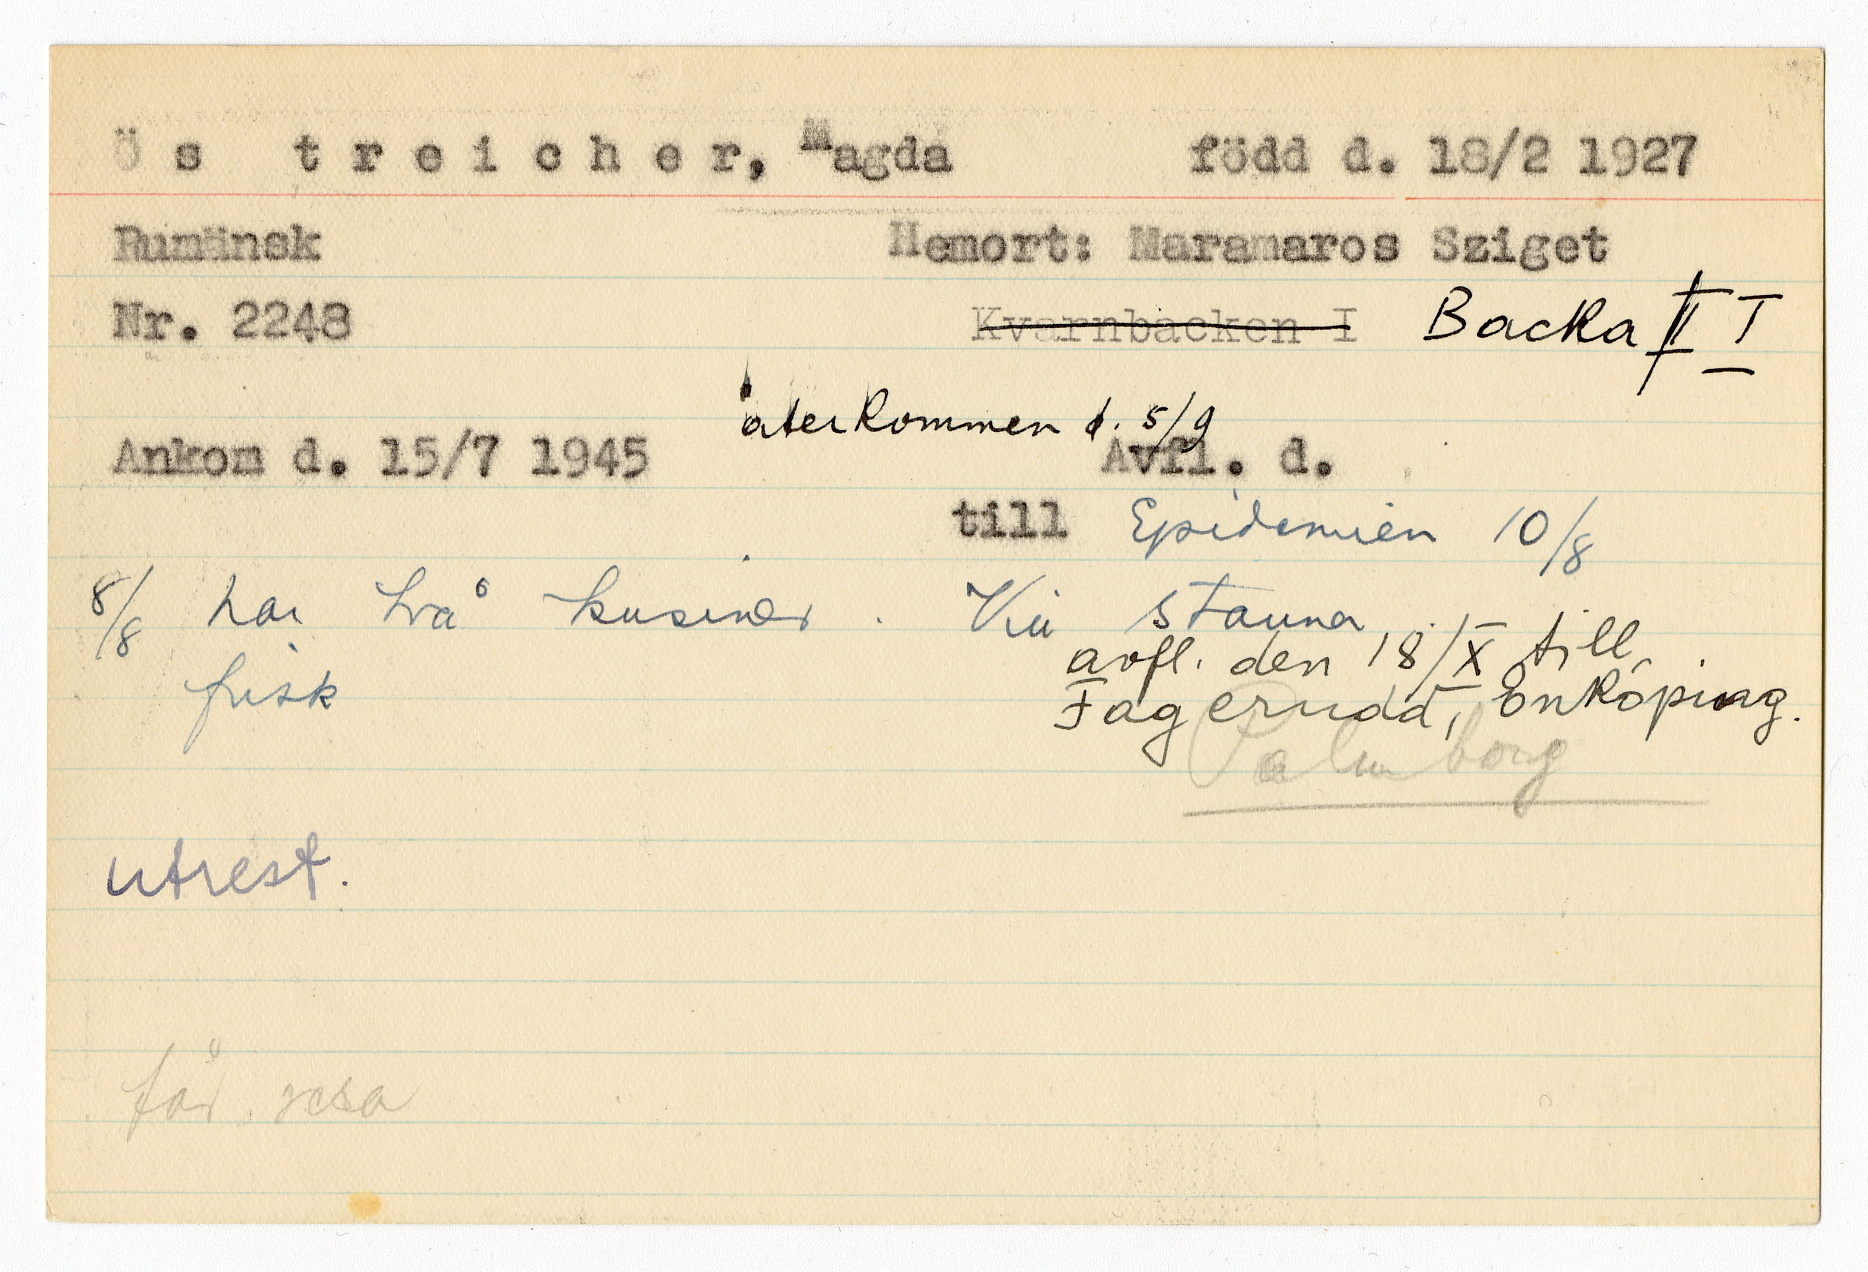 Ös treicher, Magda född d. 18/2 1927
Rumänsk Hemort: Maramaros Sziget
Nr. 2248 Kvarnbacken I Backa II I
återkommen d. 5/9
Ankom d. 15/7 1945 Avfl. d.
till Epidemien 10/8
8/8 har två kusiner. Vill stanna.
avfl. den 18/X till
frisk Fagerudd, Enköping.
Palmborg
utrest.
får resa